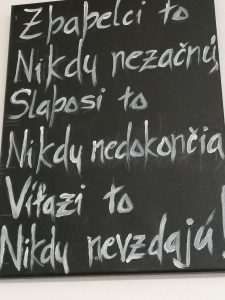 Zbabelci to
Nikdy nezačnú
Slaposi to
Nikdy nedokončia
Víťazi to
Nikdy nevzdajú!